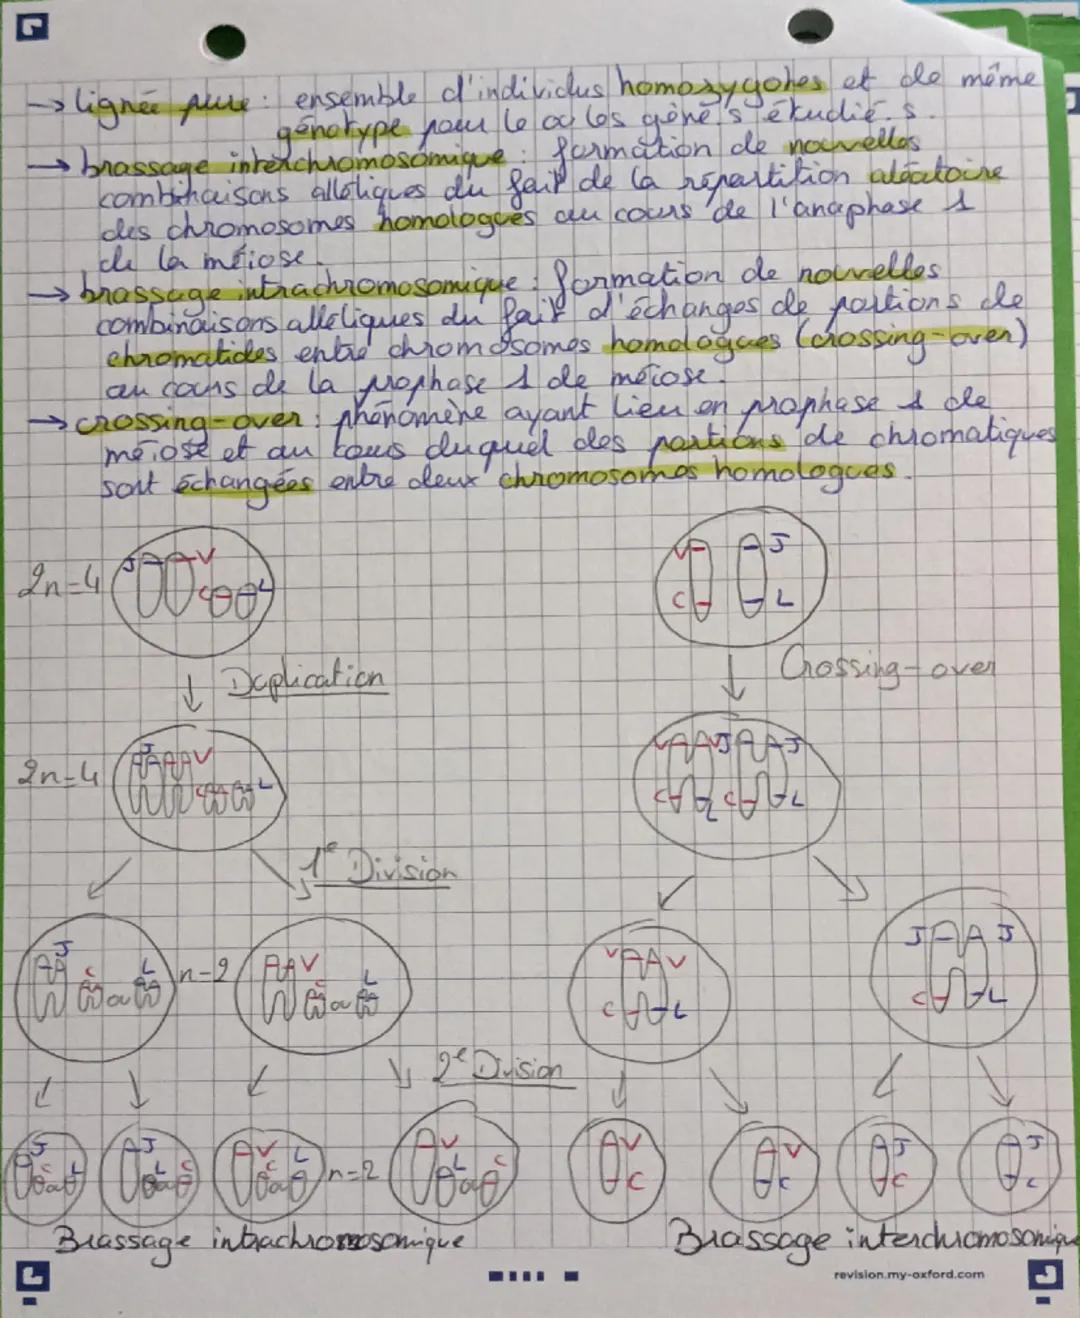 → lignée pure : ensemble d'individus homozygotes et de même
génotype pour le ou les gène.s étudié.s.
→ brassage interchromosomique : formation de nouvelles
combinaisons alléliques du fait de la répartition aléatoire
des chromosomes homologues au cours de l'anaphase 1
de la méiose.
→ brassage intrachromosomique : formation de nouvelles
combinaisons alléliques du fait d'échanges de portions de
chromatides entre chromosomes homologues (crossing-over)
au cours de la prophase 1 de méiose.
→ crossing-over : phénomène ayant lieu en prophase 1 de
méiose et au cours duquel des portions de chromatiques
sont échangées entre deux chromosomes homologues.
2n=4 J V C L
V J C L
↓ Duplication
↓ Crossing-over
2n=4 J V C L
V V J J
C L C L
1e Division
J C ou L n=2 V C ou L
V V C L
J J C L
2e Division
J C ou L J L ou C V C ou L n=2 V L ou C
V C V C J C J C
Brassage intrachromosomique Brassage interchromosomique
revision.my-oxford.com